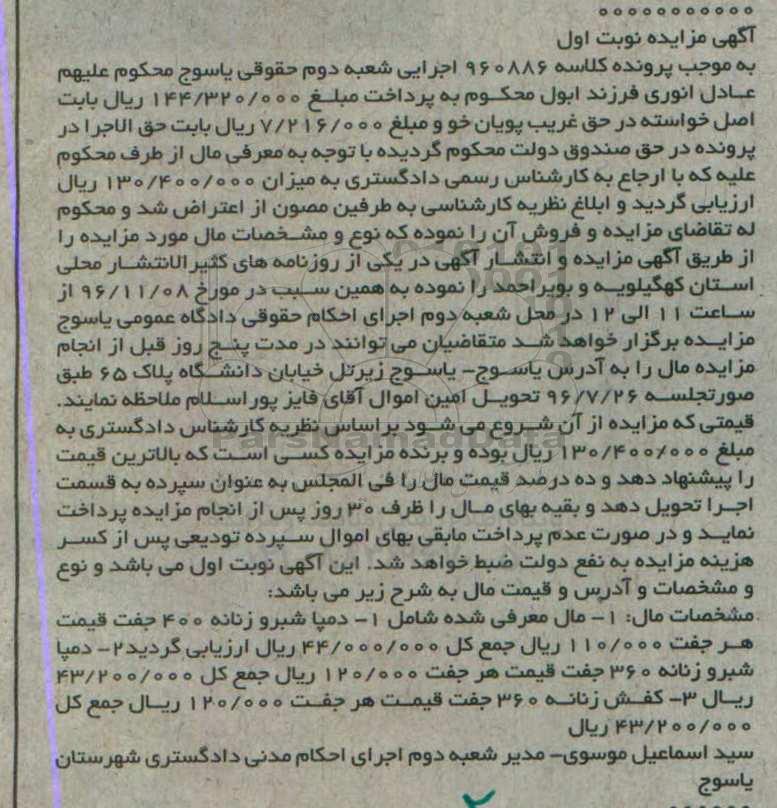 آگهی مزایده نوبت اول
به موجب پرونده کلاسه ۹۶۰۸۸۶ اجرایی شعبه دوم حقوقی یاسوج محکوم علیهم
عادل انوری فرزند ابول محکوم به پرداخت مبلغ ۱۴۴/۳۲۰/۰۰۰ ریال بابت
اصل خواسته در حق غریب پویان خو و مبلغ ۷/۲۱۶/۰۰۰ ریال بابت حق الاجرا در
پرونده در حق صندوق دولت محکوم گردیده با توجه به معرفی مال از طرف محکوم
علیه که با ارجاع به کارشناس رسمی دادگستری به میزان ۱۳۰/۴۰۰/۰۰۰ ریال
ارزیابی گردید و ابلاغ نظریه کارشناسی به طرفین مصون از اعتراض شد و محکوم
له تقاضای مزایده و فروش آن را نموده که نوع و مشخصات مال مورد مزایده را
از طریق آگهی مزایده و انتشار آگهی در یکی از روزنامه های کثیرالانتشار محلی
استان کهگیلویه و بویراحمد را نموده به همین سبب در مورخ ۹۶/۱۱/۰۸ از
ساعت ۱۱ الی ۱۲ در محل شعبه دوم اجرای احکام حقوقی دادگاه عمومی یاسوج
مزایده برگزار خواهد شد متقاضیان می توانند در مدت پنج روز قبل از انجام
مزایده مال را به آدرس یاسوج- یاسوج زیرتل خیابان دانشگاه پلاک ۶۵ طبق
صورتجلسه ۹۶/۷/۲۶ تحویل امین اموال آقای فایز پور اسلام ملاحظه نمایند.
قیمتی که مزایده از آن شروع می شود براساس نظریه کارشناس دادگستری به
مبلغ ۱۳۰/۴۰۰/۰۰۰ ریال بوده و برنده مزایده کسی است که بالاترین قیمت
را پیشنهاد دهد و ده درصد قیمت مال را فی المجلس به عنوان سپرده به قسمت
اجرا تحویل دهد و بقیه بهای مال را ظرف ۳۰ روز پس از انجام مزایده پرداخت
نماید و در صورت عدم پرداخت مابقی بهای اموال سپرده تودیعی پس از کسر
هزینه مزایده به نفع دولت ضبط خواهد شد. این آگهی نوبت اول می باشد و نوع
و مشخصات و آدرس و قیمت مال به شرح زیر می باشد:
مشخصات مال: ۱- مال معرفی شده شامل ۱- دمپا شبرو زنانه ۴۰۰ جفت قیمت
هر جفت ۱۱۰/۰۰۰ ریال جمع کل ۴۴/۰۰۰/۰۰۰ ریال ارزیابی گردید۲- دمپا
شبرو زنانه ۳۶۰ جفت قیمت هر جفت ۱۲۰/۰۰۰ ریال جمع کل ۴۳/۲۰۰/۰۰۰
ریال ۳- کفش زنانه ۳۶۰ جفت قیمت هر جفت ۱۲۰/۰۰۰ ریال جمع کل
۴۳/۲۰۰/۰۰۰ ریال
سید اسماعیل موسوی- مدیر شعبه دوم اجرای احکام مدنی دادگستری شهرستان
یاسوج